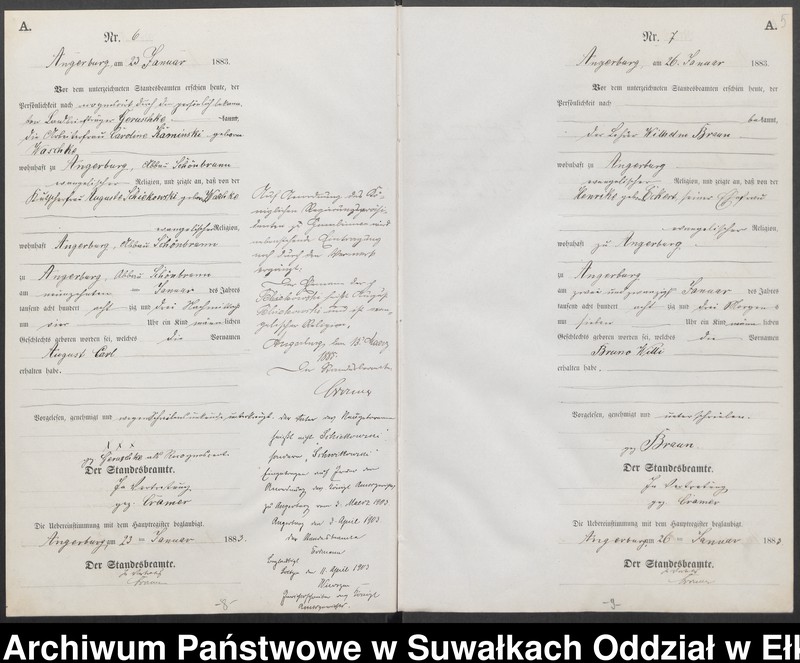 A.
Nr. 6
Angerburg, am 23 Januar 1883.
Vor dem unterzeichneten Standesbeamten erschien heute, der
Persönlichkeit nach
kannt,
die Arbeiterfrau Caroline Kaminski geborne
Waschke
wohnhaft zu Angerburg, Abbau Schönbrunn
evangelischer Religion, und zeigte an, daß von der
Auguste Schiekowski geborne Waschke
evangelischer Religion,
wohnhaft Angerburg, Abbau Schönbrunn
zu Angerburg, Abbau Schönbrunn
am neunzehnten Januar des Jahres
tausend acht hundert acht zig und drei Nachmittags
um vier Uhr ein Kind männ lichen
Geschlechts geboren worden sei, welches die Vornamen
August Carl
erhalten habe.
Vorgelesen, genehmigt und
+ + +
Der Standesbeamte.
In Vertretung
gez. Cramer
Die Uebereinstimmung mit dem Hauptregister beglaubigt.
Angerburg, am 23 ten Januar 1883.
Der Standesbeamte.
In Vertretung
Cramer
Auf Anordnung des Kö-
niglichen Regierungspräsi-
denten zu Gumbinnen wird
nebenstehende Eintragung
ergänzt.
Der Ehemann der
August
und ist evan-
gelischer Religion.
Angerburg, den
1885.
Der Standesbeamte
Cramer
der Vater des
heißt nicht "Schiekowski"
sondern "Schwitkowski"
Eingetragen auf Grund der
Anordnung des Königl. Amtsgerichts
zu Angerburg vom 3. Maerz 1903
Angerburg den 3 April 1903
der Standesbeamte
Beglaubigt
den 11. April 1903
-8-
A.
5
Nr. 7
Angerburg, am 26. Januar 1883.
Vor dem unterzeichneten Standesbeamten erschien heute, der
Persönlichkeit nach
be kannt,
der Lehrer Wilhelm Braun
wohnhaft zu Angerburg
evangelischer Religion, und zeigte an, daß von der
Henriette geborne Eckert, seiner Ehefrau
evangelischer Religion,
wohnhaft zu Angerburg
zu Angerburg
am zwei und zwanzigsten Januar des Jahres
tausend acht hundert acht zig und drei Morgens
um sieben Uhr ein Kind männ lichen
Geschlechts geboren worden sei, welches die Vornamen
Bruno Willi
erhalten habe.
Vorgelesen, genehmigt und unterschrieben.
gez. Braun
Der Standesbeamte.
In Vertretung
gez. Cramer
Die Uebereinstimmung mit dem Hauptregister beglaubigt.
Angerburg, am 26 ten Januar 1883
Der Standesbeamte.
In Vertretung
Cramer
-9-
Archiwum Państwowe w Suwałkach Oddział w Eł